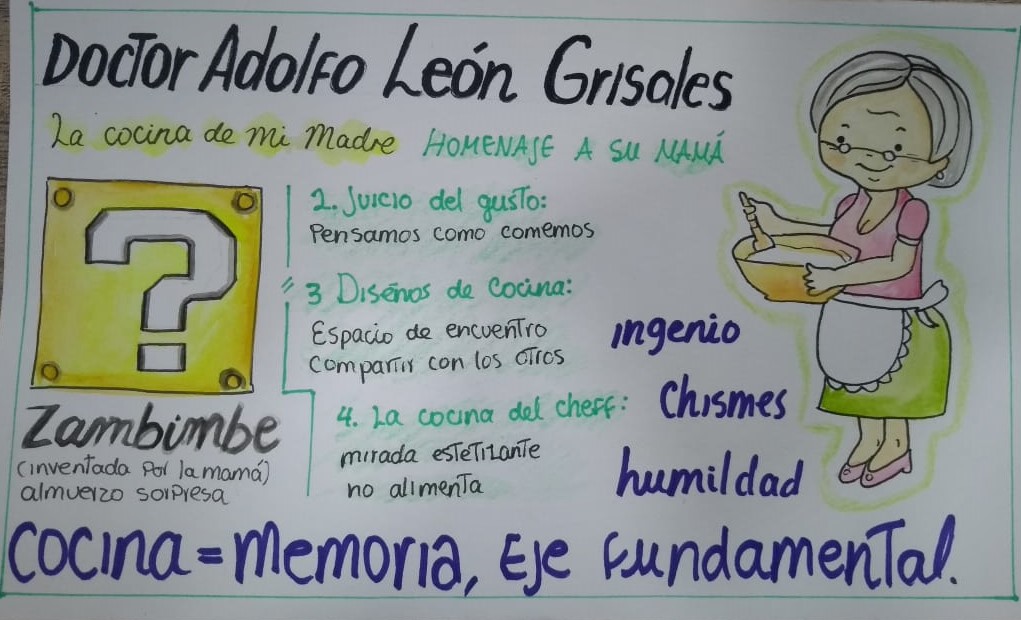 Doctor Adolfo León Grisales
La cocina de mi Madre HOMENAJE A SU MAMÁ
2. Juicio del gusto:
Pensamos como comemos
3 Diseños de cocina:
Espacio de encuentro
compartir con los otros
4. La cocina del cheff:
mirada estetizante
no alimenta
Zambimbe
(inventada por la mamá)
almuerzo sorpresa
ingenio
Chismes
humildad
cocina = memoria, Eje fundamental.